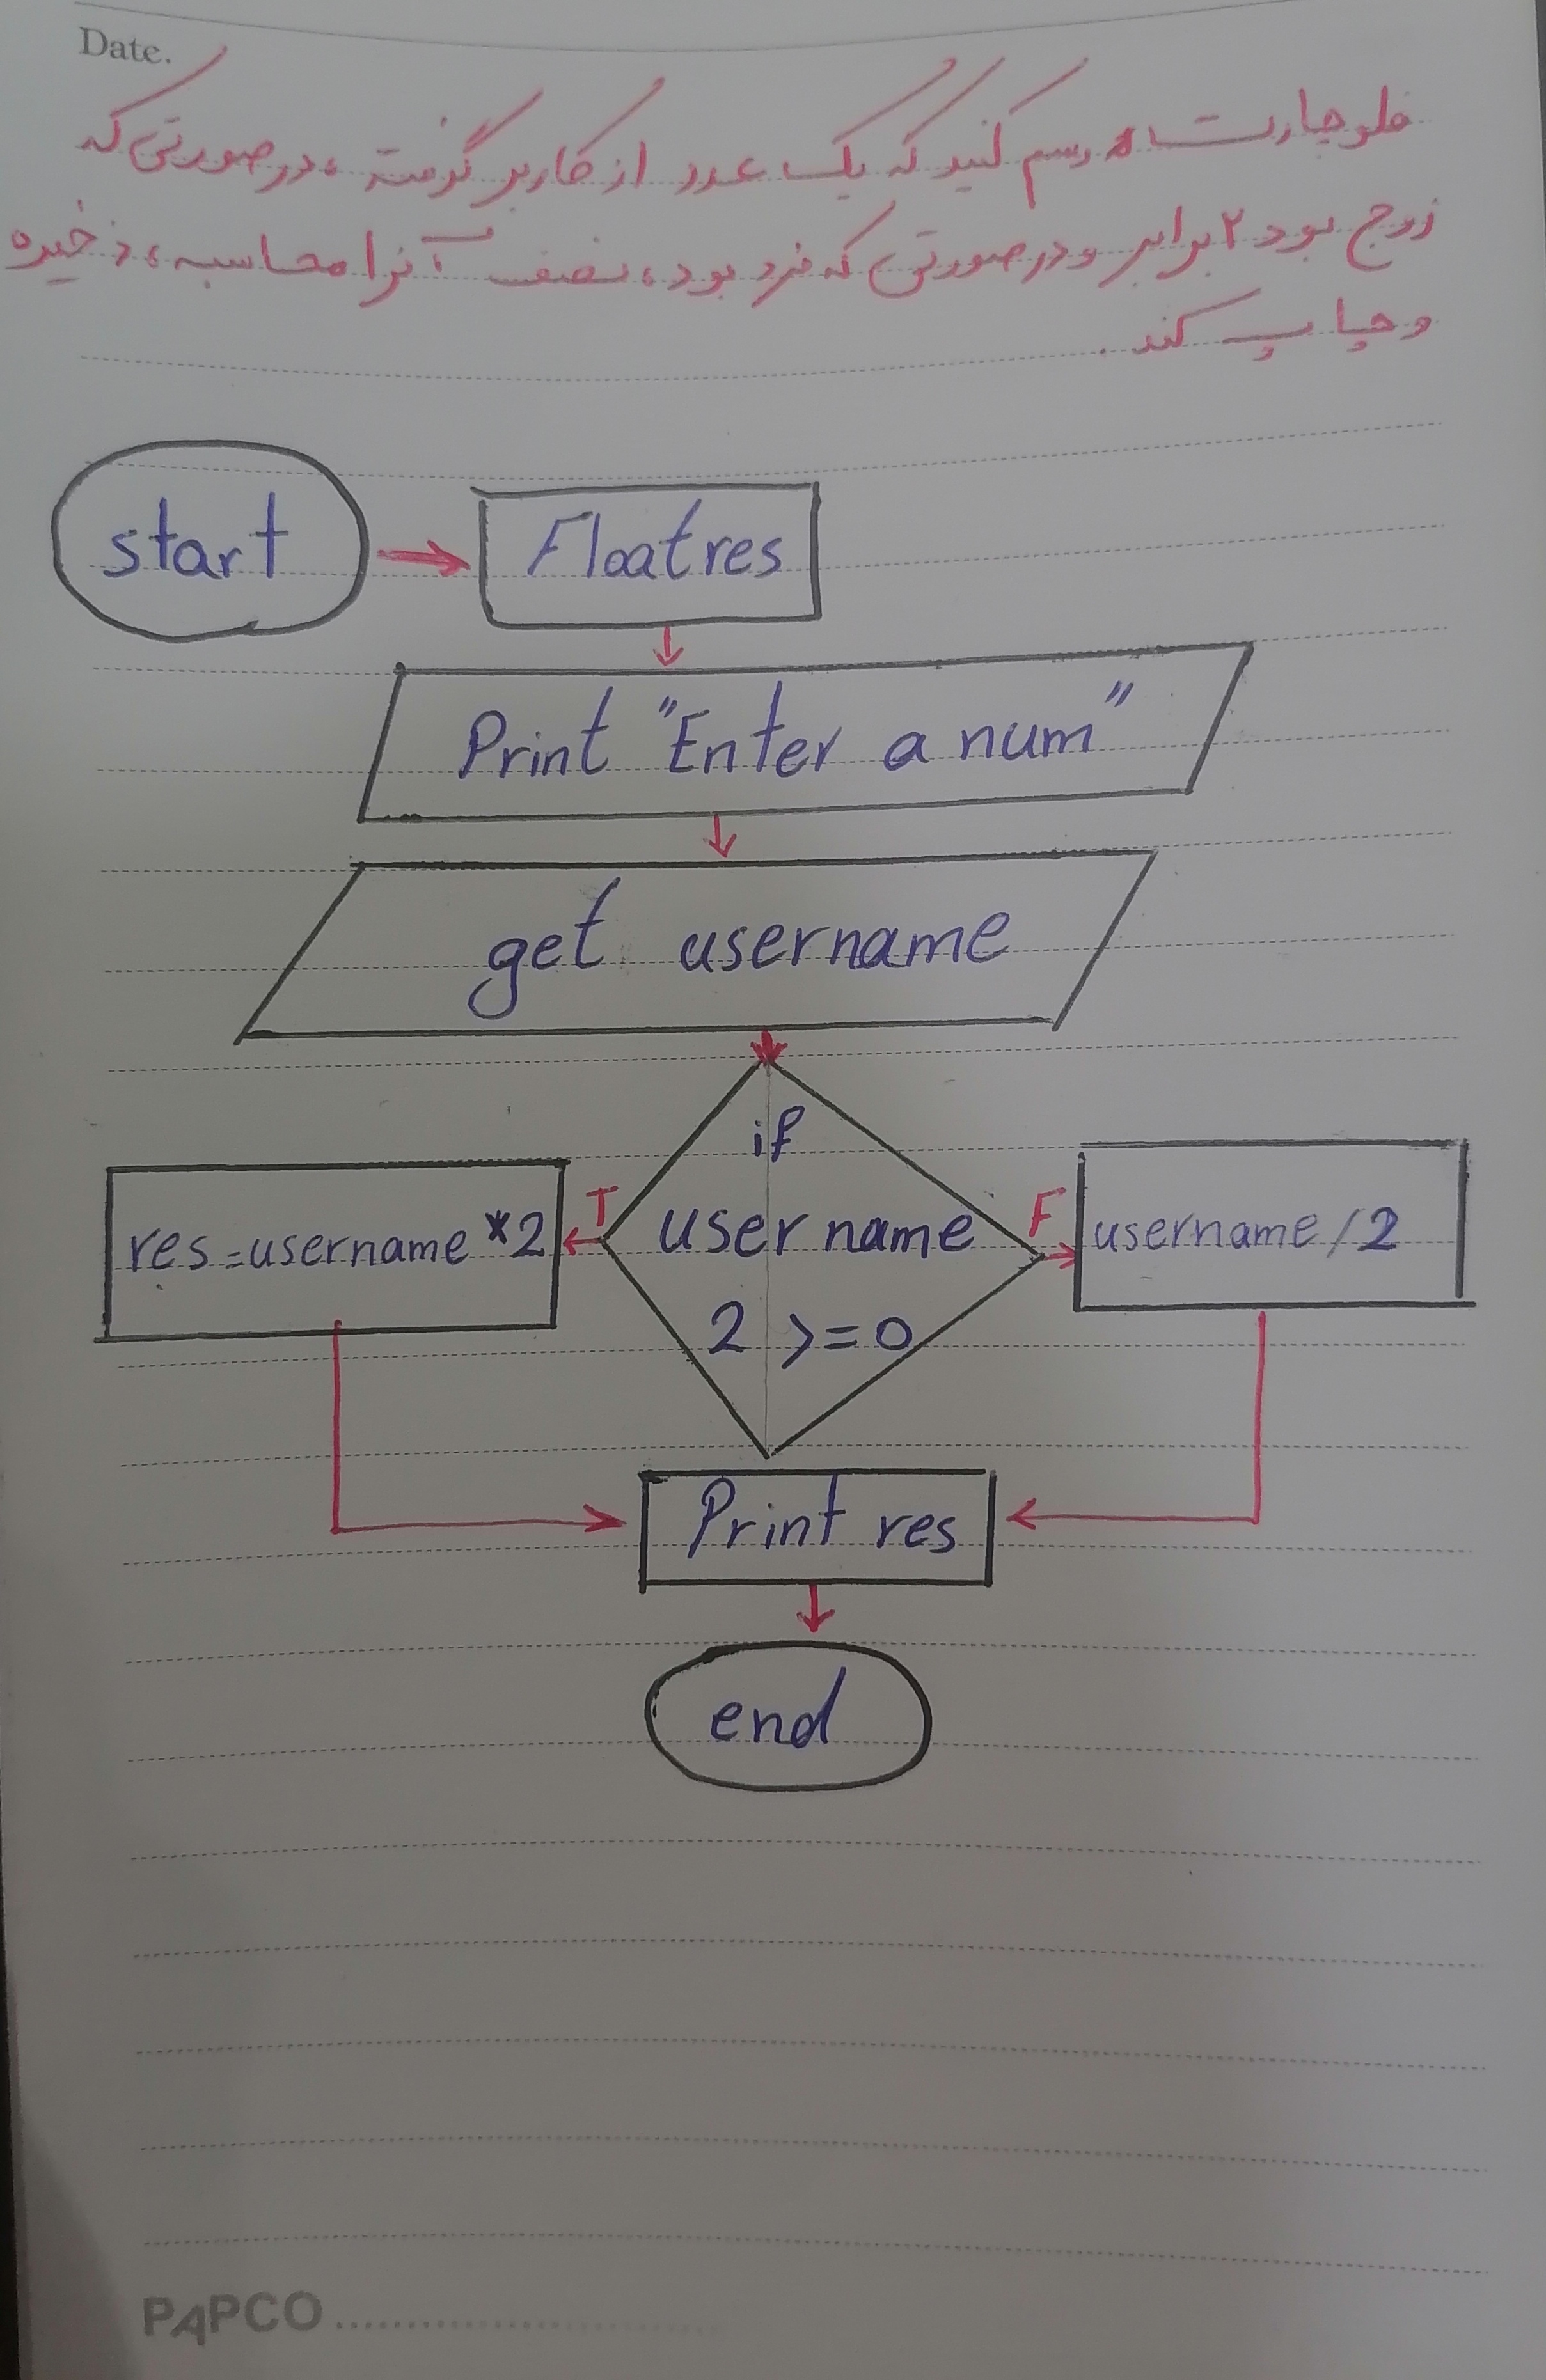 Date.
فلوچارت رسم کنید که یک عدد از کاربر گرفته، در صورتی که
زوج بود ۲ برابر و در صورتی که فرد بود، نصف آنرا محاسبه، ذخیره
و چاپ کند.
start
Float res
Print "Enter a num"
get username
if
username
2 >=0
T
F
res=username*2
username/2
Print res
end
PAPCO